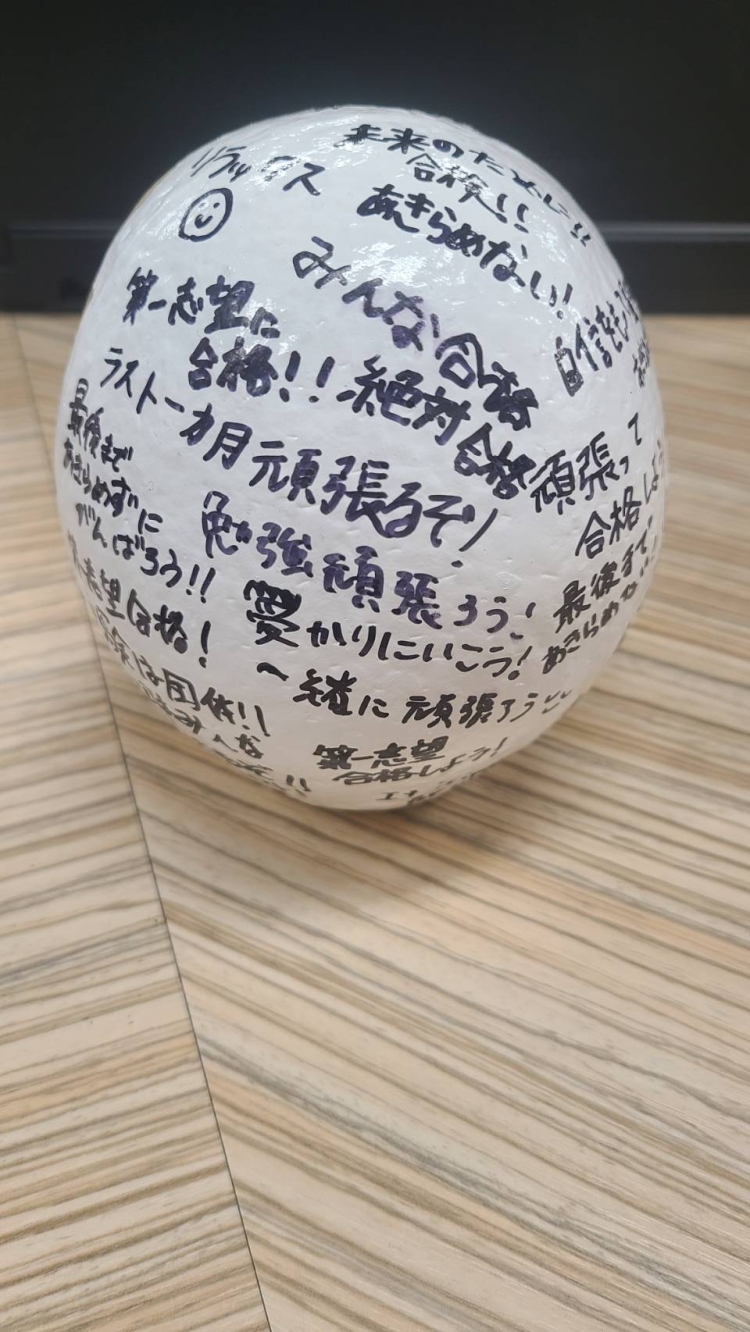 リラックス
未来のために!!
合格!!
あきらめない!
みんな合格
第一志望に
合格!!
絶対合格
自信をも
ラスト一カ月頑張るぞ!
頑張って
合格しよう
最後まで
あきらめずに
がんばろう!!
勉強頑張ろう!
最後まで
あきらめない
第一志望合格!
受かりにいこう!
一緒に頑張ろう
は団体!!
みんな
第一志望
合格しよう!